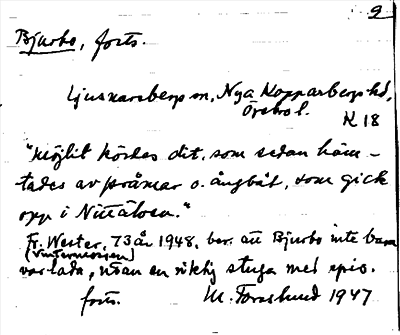 2
Bjurbo, forts.
Ljusnarsbergs sn, Nya Kopparbergs hd,
Örebro l.
K 18
"möjlit kördes dit, som sedan häm-
tades av pråmar o. ångbåt, som gick
opp i Nittälven."
Fr. Wester, 73 år 1948, ber. att Bjurbo inte bara
(Vintermossen)
var lada, utan en riktig stuga med spis.
forts. M. Forslund 1947